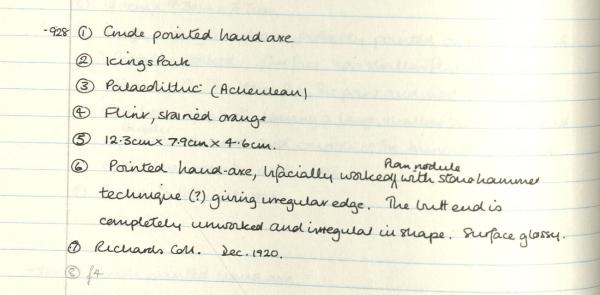 -928 ① Crude pointed hand axe
② Kings Park
③ Palaeolithic (Acheulean)
④ Flint, stained orange
⑤ 12.3cm x 7.9cm x 4.6cm.
from nodule
⑥ Pointed hand-axe, bifacially worked with stone hammer
technique (?) giving irregular edge. The butt end is
completely unworked and irregular in shape. Surface glossy.
⑦ Richards Coll. Dec. 1920.
⑧ f4